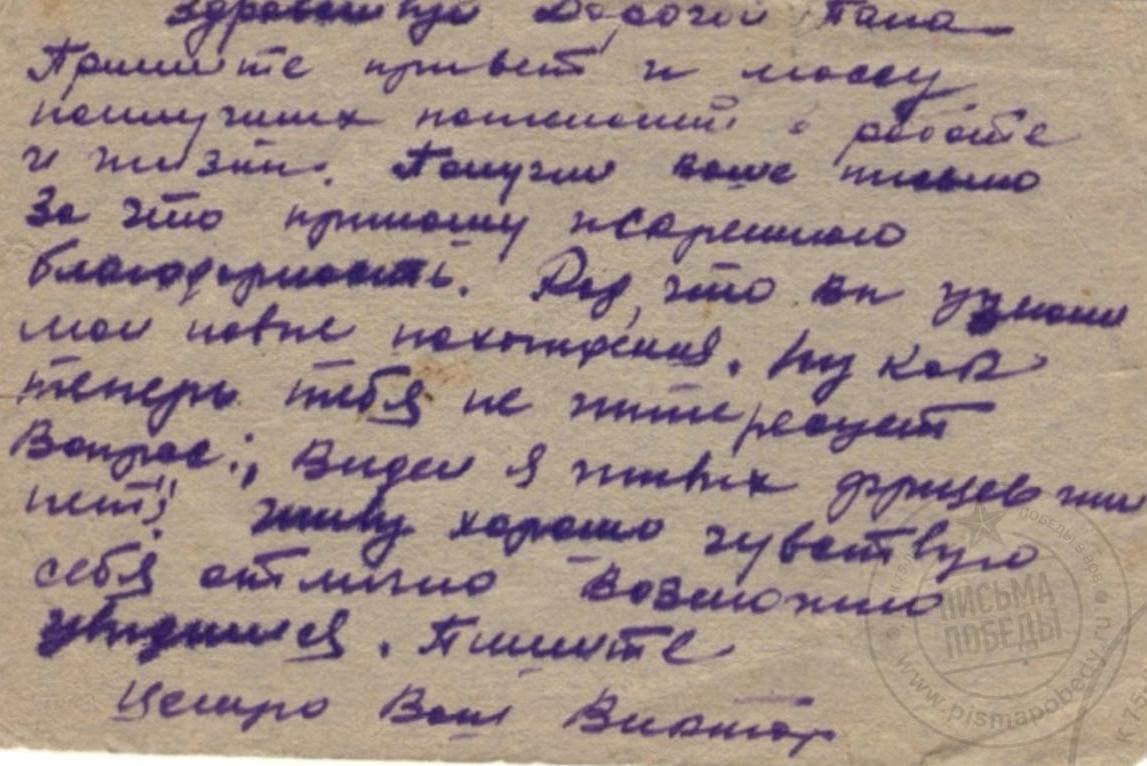 Здравствуй Дорогой Папа
Примите привет и массу
наилучших пожеланий в работе
и жизни. Получил ваше письмо
За что приношу искреннюю
благодарность. Рад, что вы узнали
мои новые похождения. Ну как
теперь тебя не интересует
Вопрос:, Видел я живых фрицев или
нет! живу хорошо чувствую
себя отлично возможно
увидимся. Пишите
Целую Ваш Виктор
ПИСЬМА
ПОБЕДЫ
www.pismapobedy.ru